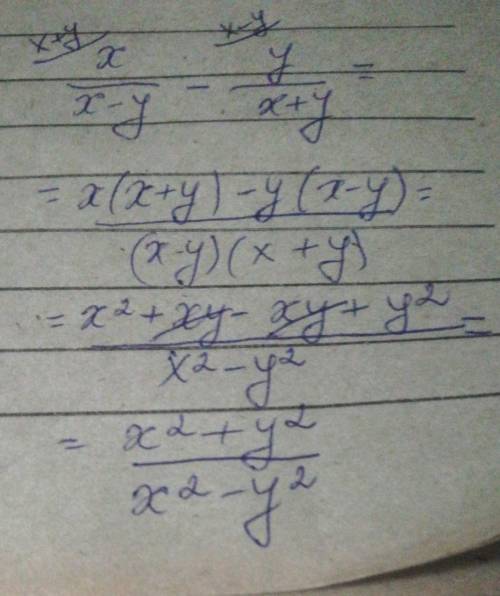 x+y x-y
x/(x-y) - y/(x+y) =
= x(x+y)-y(x-y) =
(x-y)(x+y)
= x²+xy-xy+y² =
x²-y²
= x²+y²
x²-y²